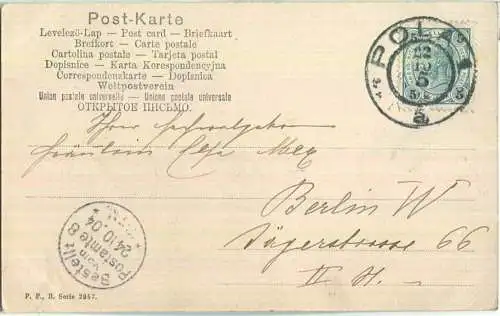 Post-Karte
Levelező-Lap — Post card — Briefkaart
Brefkort — Carte postale
Cartolina postale — Tarjeta postal
Dopisnice — Karta Korespondencyjna
Correspondenzkarte — Dopisnica
Weltpostverein
Union postale universelle — Unione postale universale
ОТКРЫТОЕ ПИСЬМО.
POLA
5
a
5 5
Fräulein
Berlin W
Jägerstrasse 66
II St.
Bestellt
vom
Postamte 8
24.10.04
P. F., B. Serie 2957.